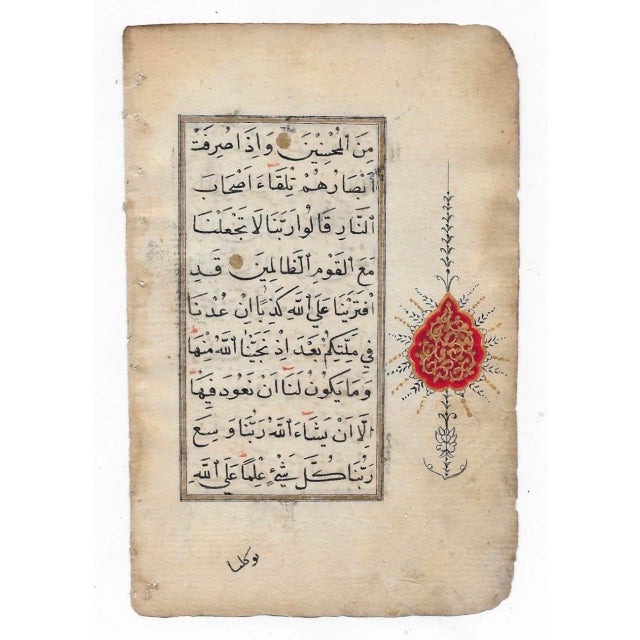 مِنَ الْمُحْسِنِينَ وَاِذَا صُرِفَتْ
اَبْصَارُهُمْ تِلْقَاءَ اَصْحَابِ
النَّارِ قَالُوا رَبَّنَا لَا تَجْعَلْنَا
مَعَ الْقَوْمِ الظَّالِمِينَ قَدِ
افْتَرَيْنَا عَلَى اللّٰهِ كَذِبًا اِنْ عُدْنَا
فِي مِلَّتِكُمْ بَعْدَ اِذْ نَجّٰينَا اللّٰهُ مِنْهَا
وَمَا يَكُونُ لَنَا اَنْ نَعُودَ فِيهَا
اِلَّا اَنْ يَشَاءَ اللّٰهُ رَبُّنَا وَسِعَ
رَبُّنَا كُلَّ شَيْءٍ عِلْمًا عَلَى اللّٰهِ
توكلنا